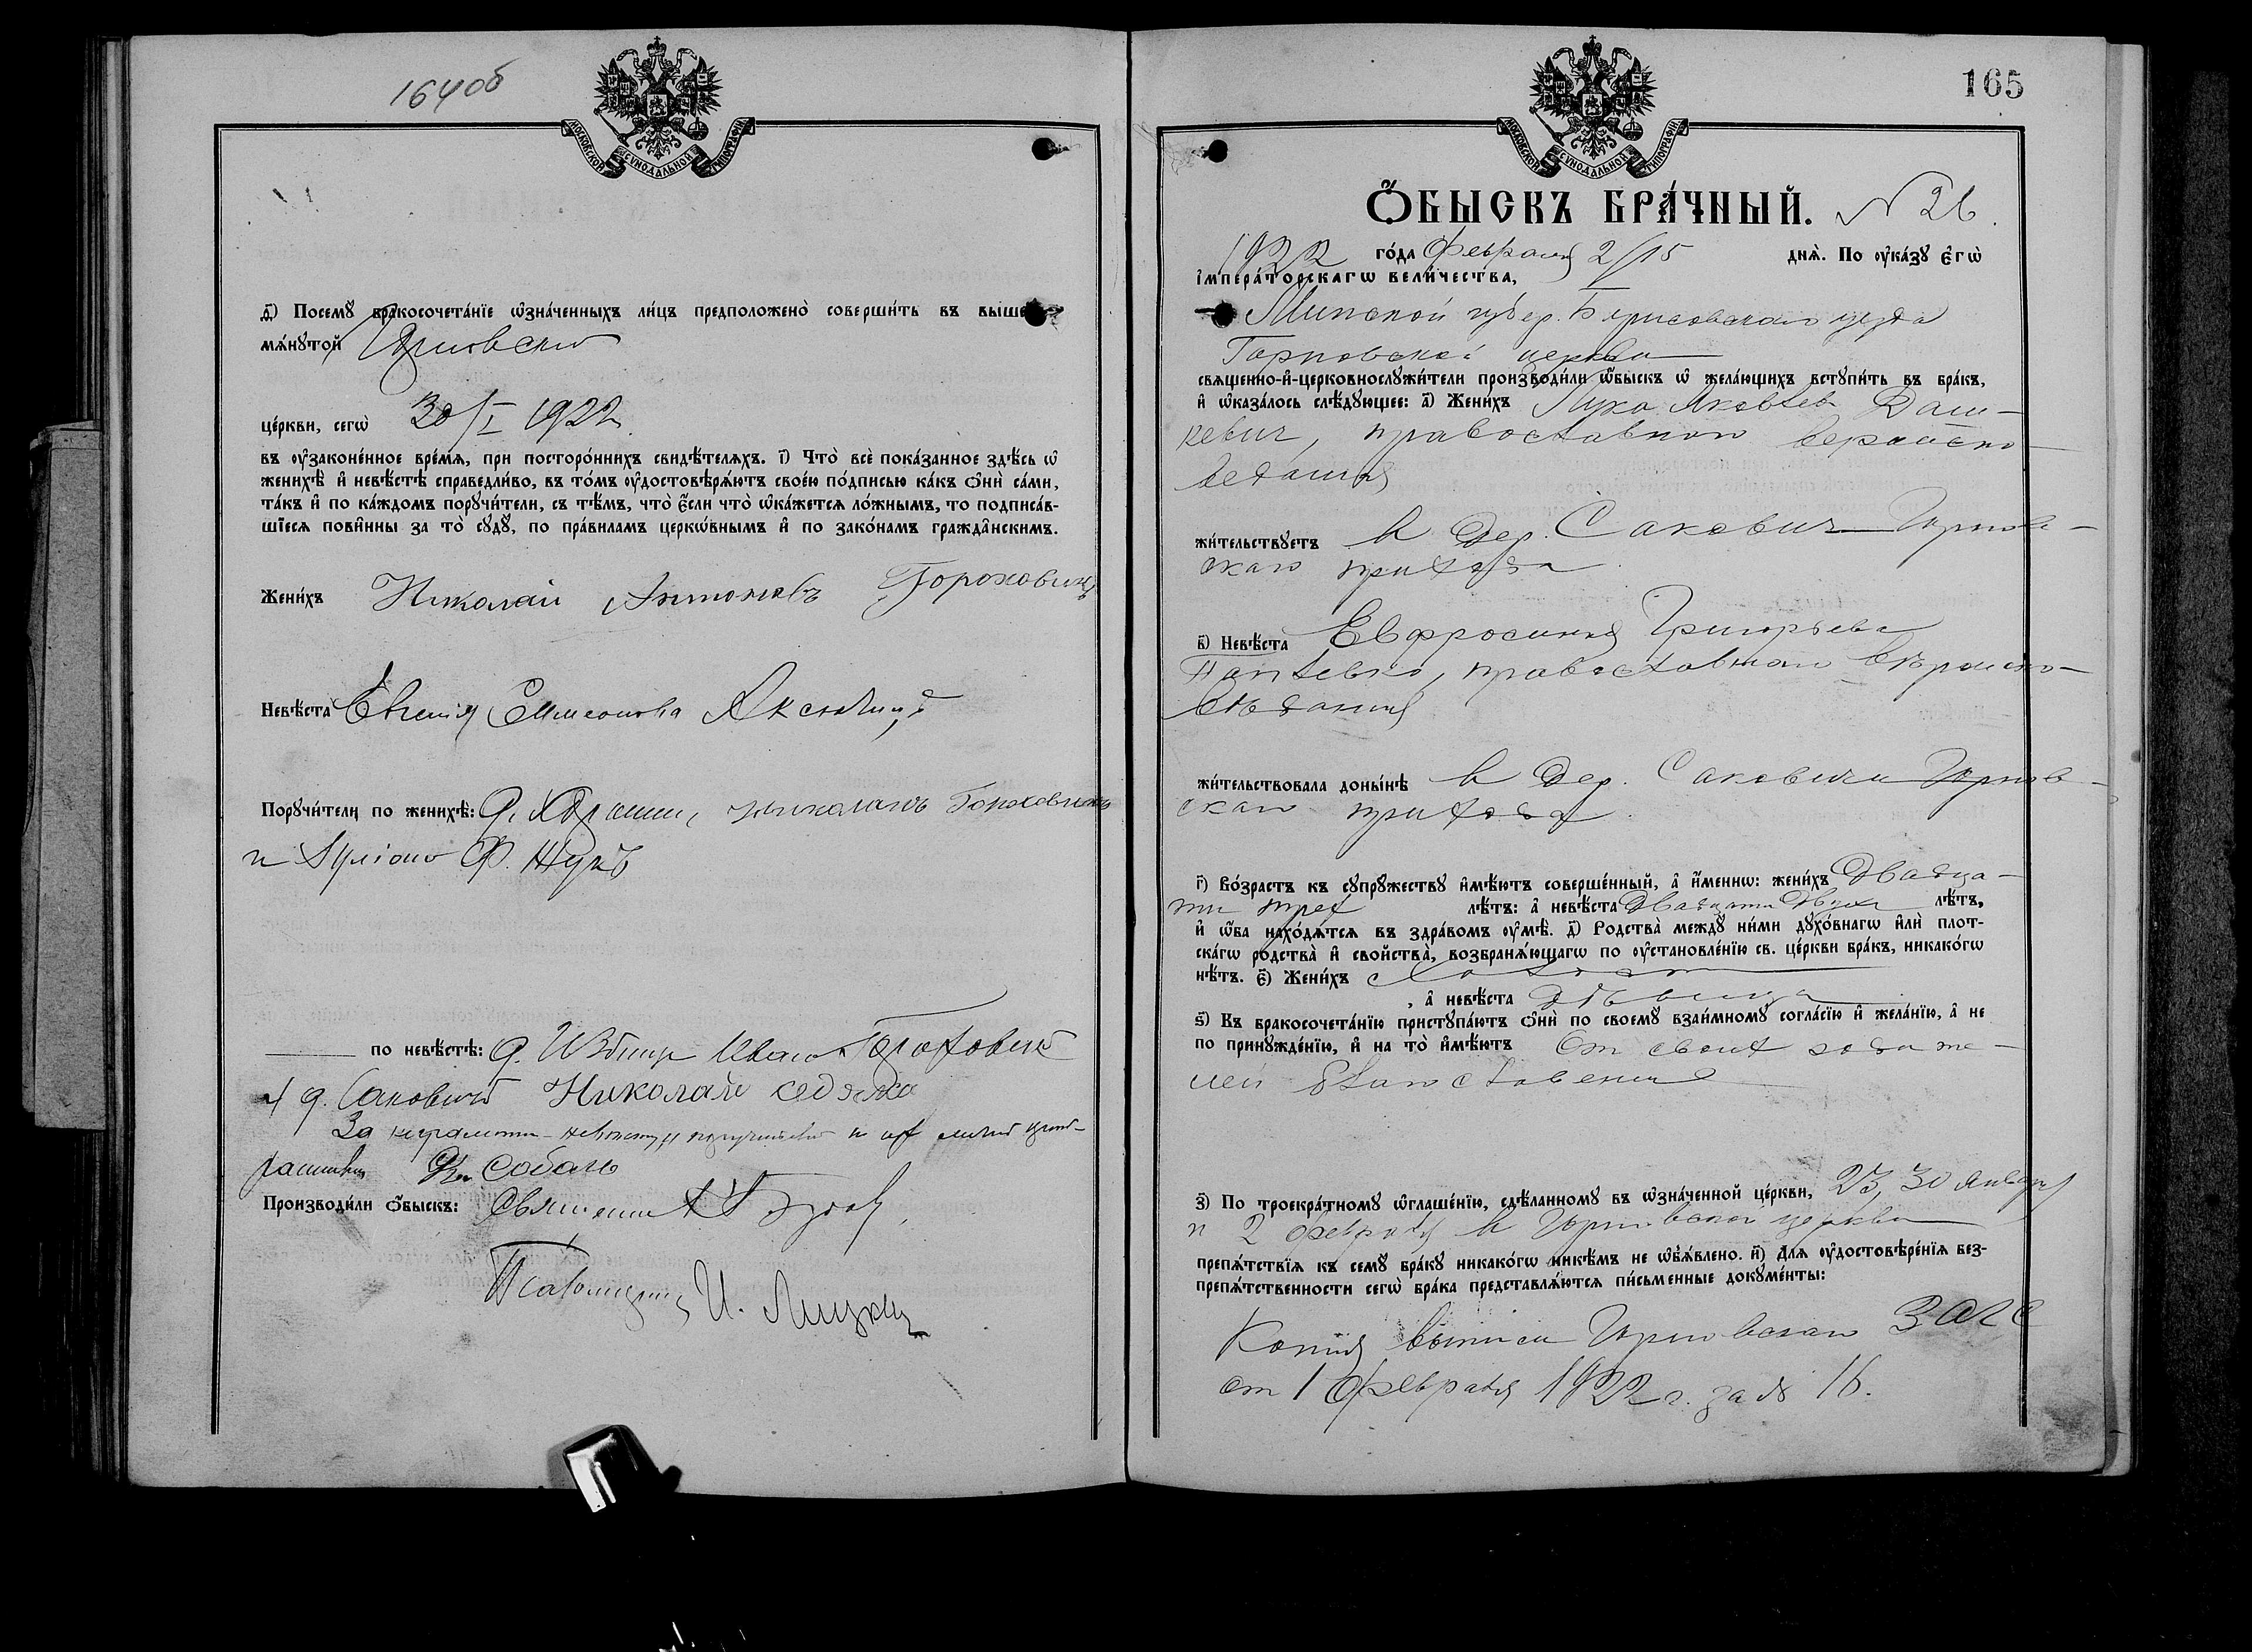 164об
МОСКОВСКОЙ СѴНОДАЛЬНОЙ ТИПОГРАФІИ
д҃) Посемꙋ бракосочета́нїе ѡ҆зна́ченныхъ ли́цъ предположено̀ соверши́ть въ выше
мѧ́нꙋтой Горновской
це́ркви, сегѡ̀ 30/I 1922
въ ᲂу҆законе́нное вре́мѧ, при посторо́ннихъ свидѣ́телѧхъ. і҃) Что̀ всѐ пока́занное здѣ́сь ѡ҆
женихѣ̀ и҆ невѣ́стѣ справедли́во, въ то́мъ ᲂу҆достовѣрѧ́ютъ свое́ю по́дписью ка́къ ѻ҆нѝ са́ми,
та́къ и҆ по ка́ждомъ порꙋчи́тели, съ тѣ́мъ, что̀ є҆́сли что̀ ѡ҆ка́жетсѧ ло́жнымъ, то подписа́в-
шїесѧ пови́нны за то̀ сꙋдꙋ̀, по пра́виламъ церко́внымъ и҆ по зако́намъ гражда́нскимъ.
Жени́хъ Николай Антоновъ Гороховикъ
Невѣ́ста Евгения Симеонова Аксючиц
Порꙋчи́тели по женихѣ̀: д. Николай Гороховикъ
и Ф. Жукъ
по невѣ́стѣ: д. Иван Гороховик
и д. Саковичи Николай Седяко
За
Собаль
Производи́ли ѻ҆́быскъ: Священник
Псаломщик И. Лицкий
165
МОСКОВСКОЙ СѴНОДАЛЬНОЙ ТИПОГРАФІИ
Ѻ҆́БЫСКЪ БРА́ЧНЫЙ. N 26.
1922 го́да Февраля 2/15 днѧ̀. По ᲂу҆ка́зꙋ є҆гѡ̀
і҆мпера́торскагѡ вели́чества,
Минской губер. Борисовского уезда
Горновской церкви
свѧще́нно-и҆-церковнослꙋжи́тели производи́ли ѡ҆́быскъ ѡ҆ жела́ющихъ встꙋпи́ть въ бра́къ,
и҆ ѡ҆каза́лось слѣ́дꙋющее: а҃) Жени́хъ Лука Яковлев Даш-
кевич, православного вероиспо-
ведания
жи́тельствꙋетъ в дер. Сакович Горнов-
скаго прихода
в҃) Невѣ́ста Евфросиния Григорьева
православнаго вероиспо-
ведания
жи́тельствовала доны́нѣ в дер. Саковичи Горнов-
скаго прихода.
г҃) Во́зрастъ къ сꙋпрꙋ́жествꙋ и҆мѣ́ютъ соверше́нный, а҆ и҆́меннѡ: жени́хъ двадца-
ти трех лѣ́тъ: а҆ невѣ́ста двадцати двух лѣ́тъ,
и҆ ѡ҆́ба нахо́дѧтсѧ въ здра́вомъ ᲂу҆мѣ̀. д҃) Родства̀ междꙋ̀ ни́ми дꙋхо́внагѡ и҆лѝ пло́т-
скагѡ родства̀ и҆ свойства̀, возбранѧ́ющагѡ по ᲂу҆становле́нїю св. це́ркви бра́къ, никако́гѡ
нѣ́тъ. є҃) Жени́хъ холост
, а҆ невѣ́ста девица
ѕ҃) Къ бракосочета́нїю пристꙋпа́ютъ ѻ҆нѝ по своемꙋ̀ взаи́мномꙋ согла́сїю и҆ жела́нїю, а҆ не
по принꙋжде́нїю, и҆ на то̀ и҆мѣ́ютъ От своих родите-
лей благословение
з҃) По троекра́тномꙋ ѡ҆глаше́нїю, сдѣ́ланномꙋ въ ѡ҆зна́ченной це́ркви, 23, 30 января
и 2 февраля в Горновской церкви
препѧ́тствїѧ къ семꙋ̀ бра́кꙋ никако́гѡ никѣ́мъ не ѡ҆б̾ѧ́влено. и҃) Длѧ ᲂу҆достовѣре́нїѧ без-
препѧ́тственности сегѡ̀ бра́ка представлѧ́ютсѧ пи́сьменные докꙋме́нты:
Копия выписи Горновскаго ЗАГС
от 1 февраля 1922 г. за № 16.